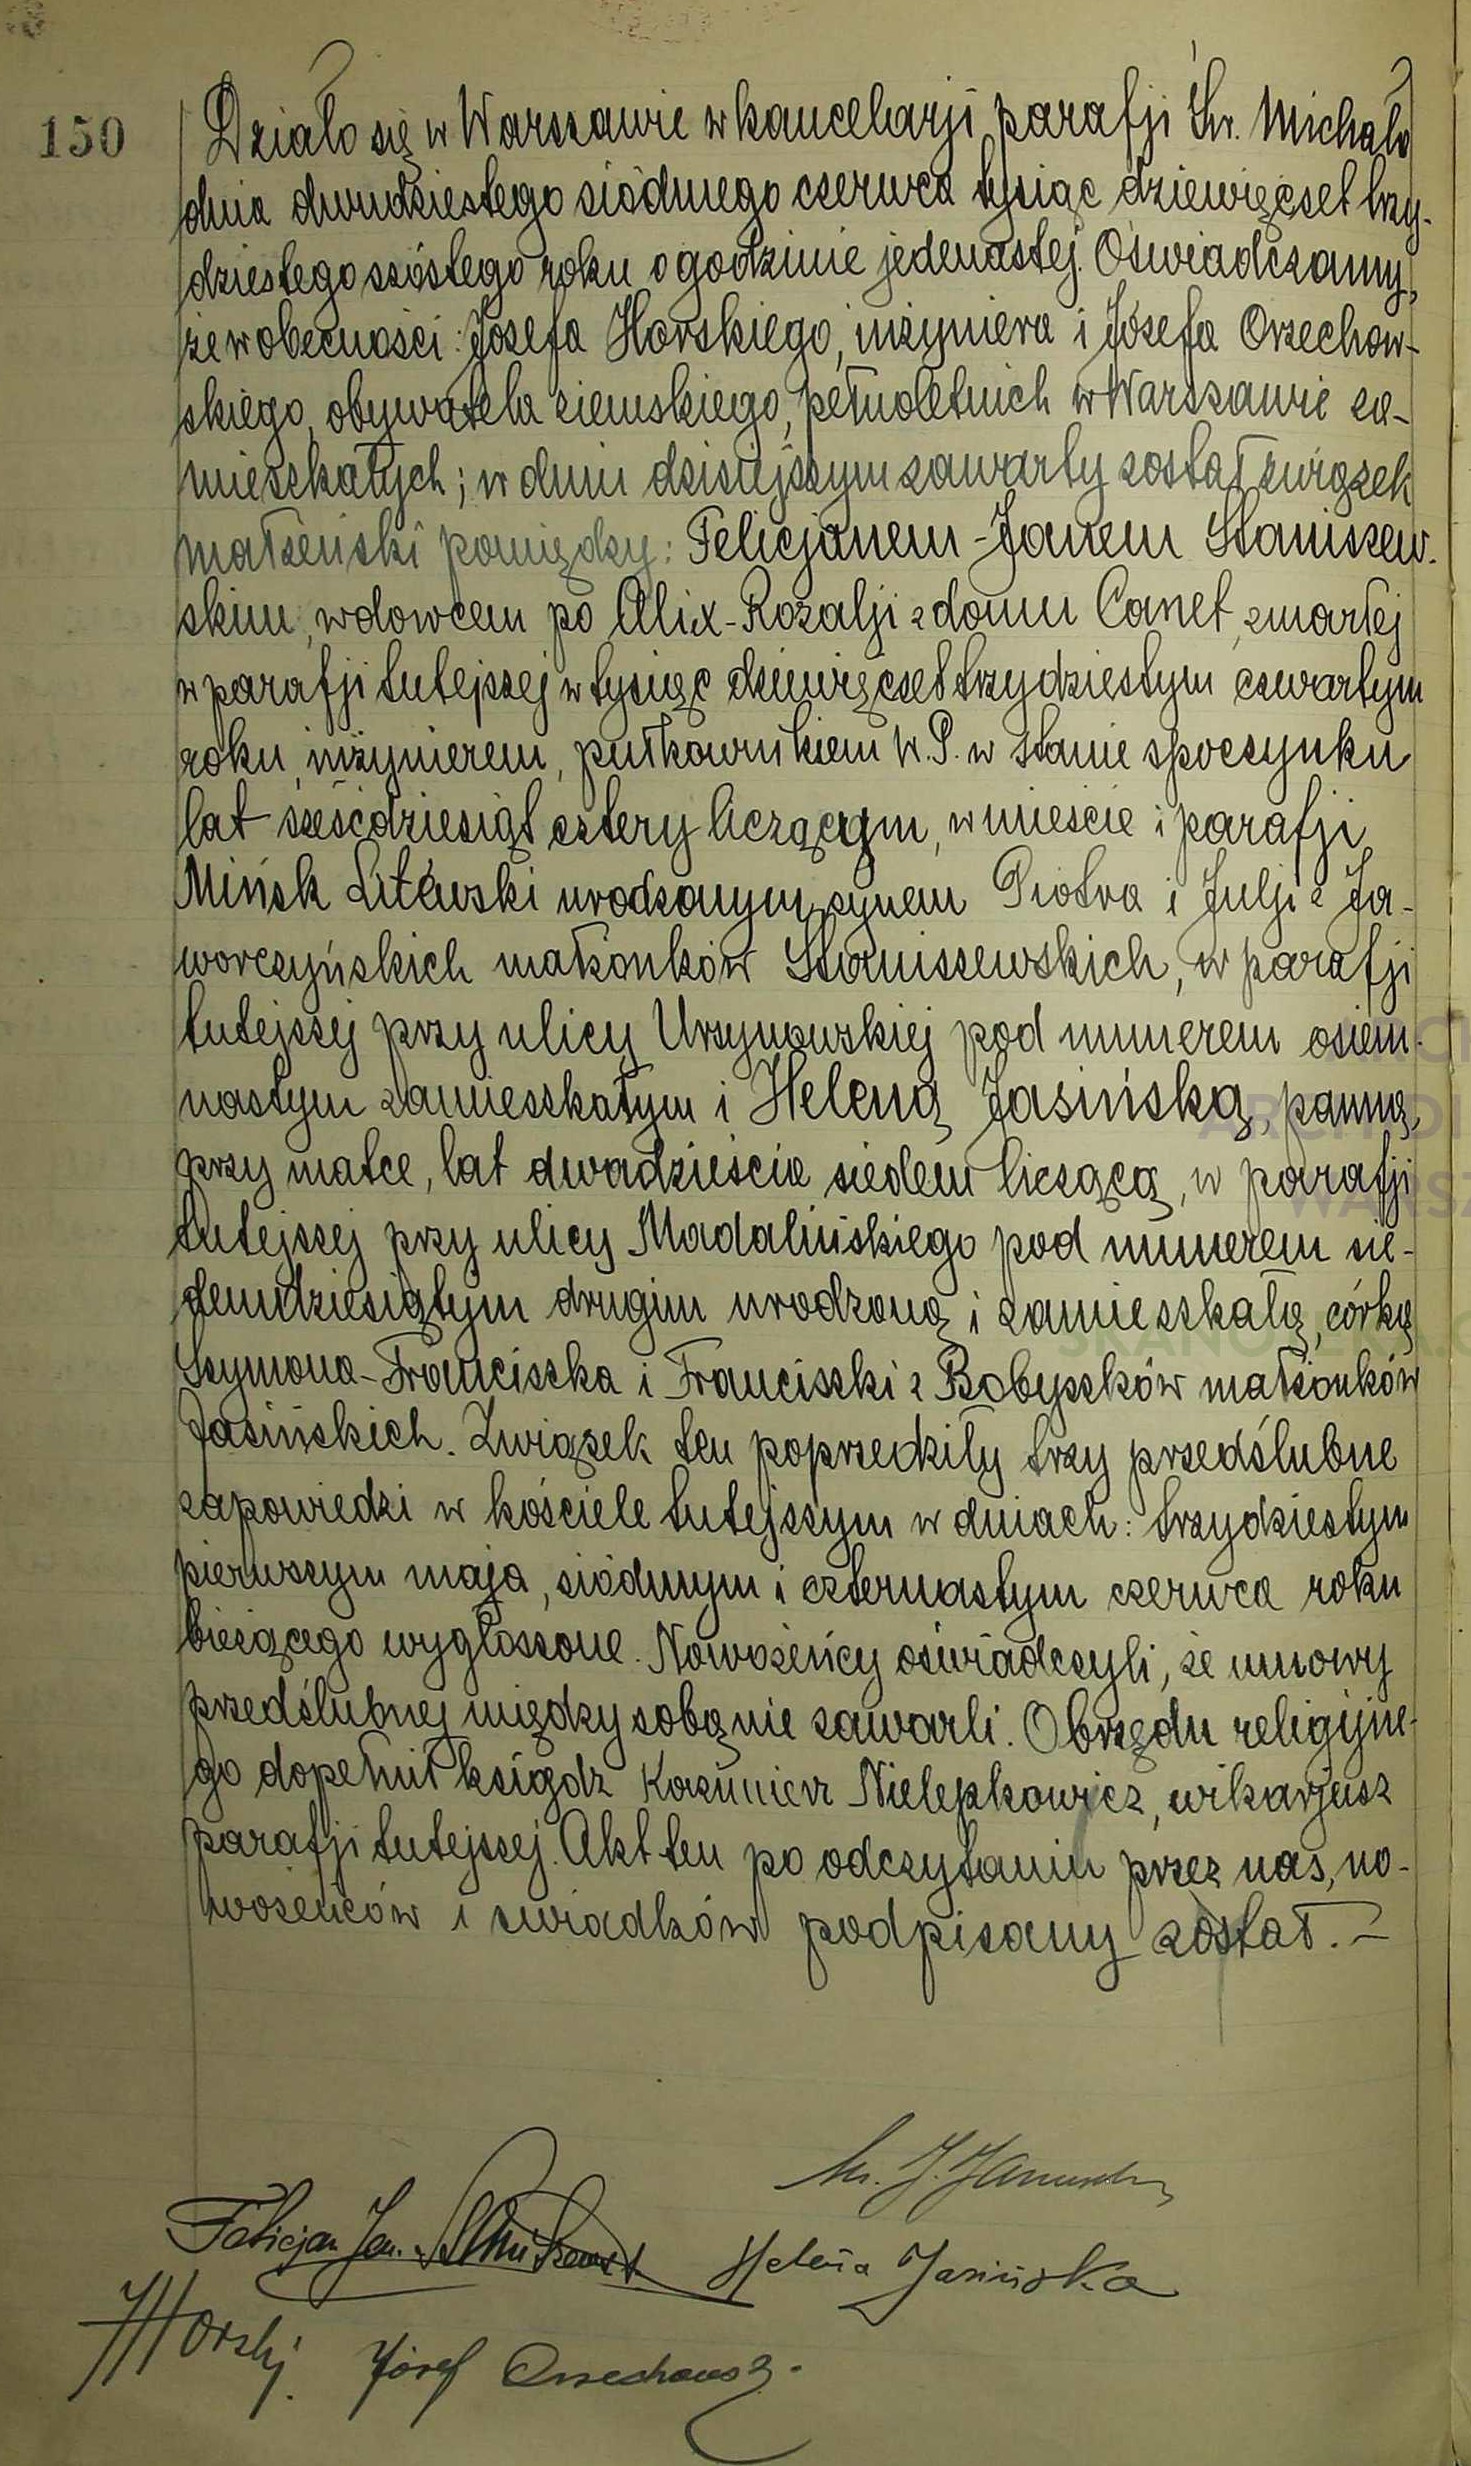 150
Działo się w Warszawie w kancelarji parafji Św. Michała
dnia dwudziestego siódmego czerwca tysiąc dziewięćset trzy-
dziestego szóstego roku o godzinie jedenastej. Oświadczamy,
że w obecności: Józefa Horskiego, inżyniera i Józefa Orzechow-
skiego, obywatela ziemskiego, pełnoletnich w Warszawie za-
mieszkałych; w dniu dzisiejszym zawarty został związek
małżeński pomiędzy: Felicjanem-Janem Staniszew-
skim, wdowcem po Alix-Rozalji z domu Canet, zmarłej
w parafji tutejszej w tysiąc dziewięćset trzydziestym czwartym
roku, inżynierem, pułkownikiem W.P. w stanie spoczynku
lat sześćdziesiąt cztery liczącym, w mieście i parafji
Mińsk Litewski urodzonym, synem Piotra i Julji z Ja-
worczyńskich małżonków Staniszewskich, w parafji
tutejszej przy ulicy Ursynowskiej pod numerem osiem-
nastym zamieszkałym i Heleną Jasińską, panną,
przy matce, lat dwadzieścia siedem liczącą, w parafji
tutejszej przy ulicy Madalińskiego pod numerem sie-
demdziesiątym drugim urodzoną i zamieszkałą, córką
Szymona-Franciszka i Franciszki z Bobyszków małżonków
Jasińskich. Związek ten poprzedziły trzy przedślubne
zapowiedzi w kościele tutejszym w dniach: trzydziestym
pierwszym maja, siódmym i czternastym czerwca roku
bieżącego wygłoszone. Nowożeńcy oświadczyli, że umowy
przedślubnej między sobą nie zawarli. Obrzędu religijne-
go dopełnił ksiądz Kazimierz Nielepkowicz, wikarjusz
parafji tutejszej. Akt ten po odczytaniu przez nas, no-
wożeńców i świadków podpisany został. –
Felicjan Jan Helena Jasińska
JHorski Józef